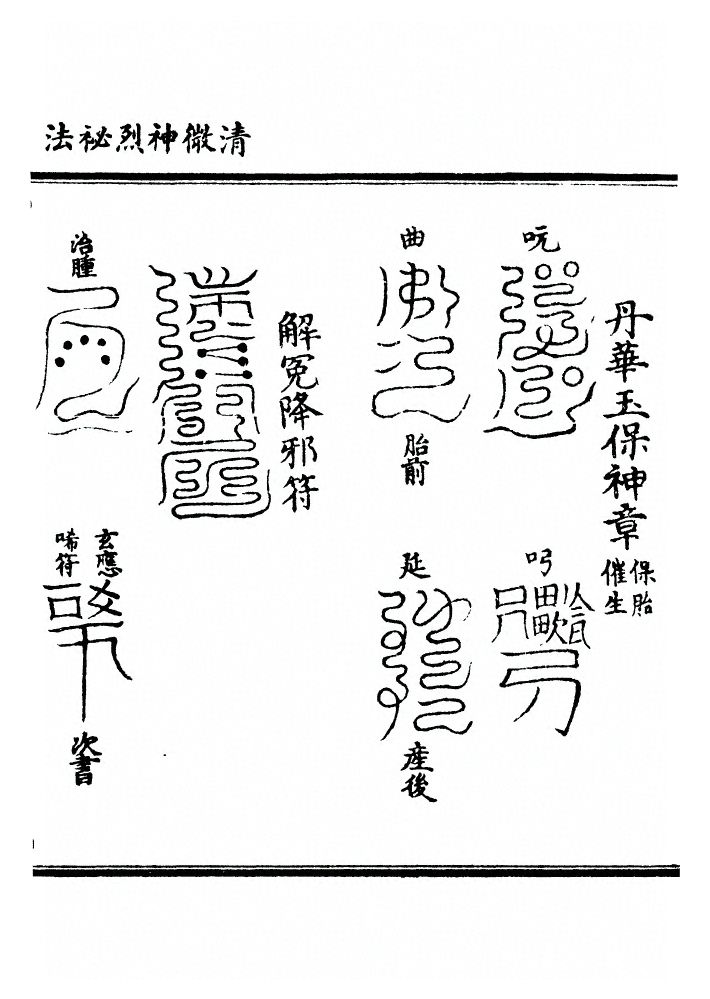 清微神烈祕法
丹華玉保神章
保胎
催生
吭
吲
曲
胎前
延
產後
解冤降邪符
治腫
玄應
唏符
次書